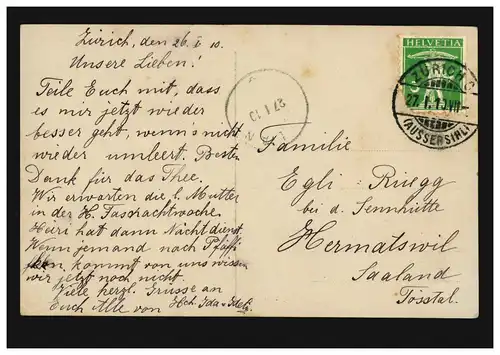 Zürich, den 26. I 10.
Unsere Lieben!
Teile Euch mit, dass
es mir jetzt wieder
besser geht, wenn's nicht
wieder umleert. Besten
Dank für das Thee.
Wir erwarten die l. Mutter
in der H. Fasnachtwoche.
Heiri hat dann Nicht dienst.
Wenn jemand nach Pfäffi
kon, kommt von uns wissen
wir jetzt noch nicht.
Viele herzl. Grüsse an
Euch Alle von Hch. Ida
27 I 10
HELVETIA
ZÜRICH 9
27. I. 10. VII
(AUSSERSIHL)
Familie
Egli-Ruegg
bei d. Sennhütte
Hermatswil
Saaland
Tösstal.